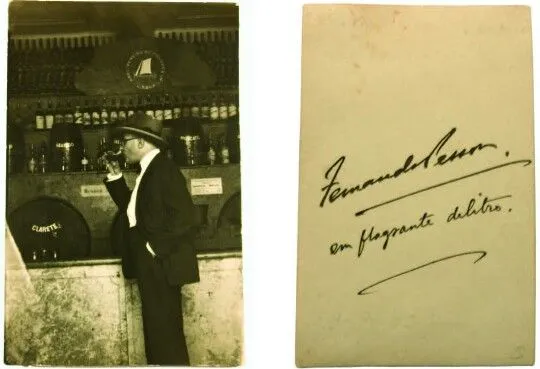 CLARETE
Fernando Pessoa.
em flagrante delitro.